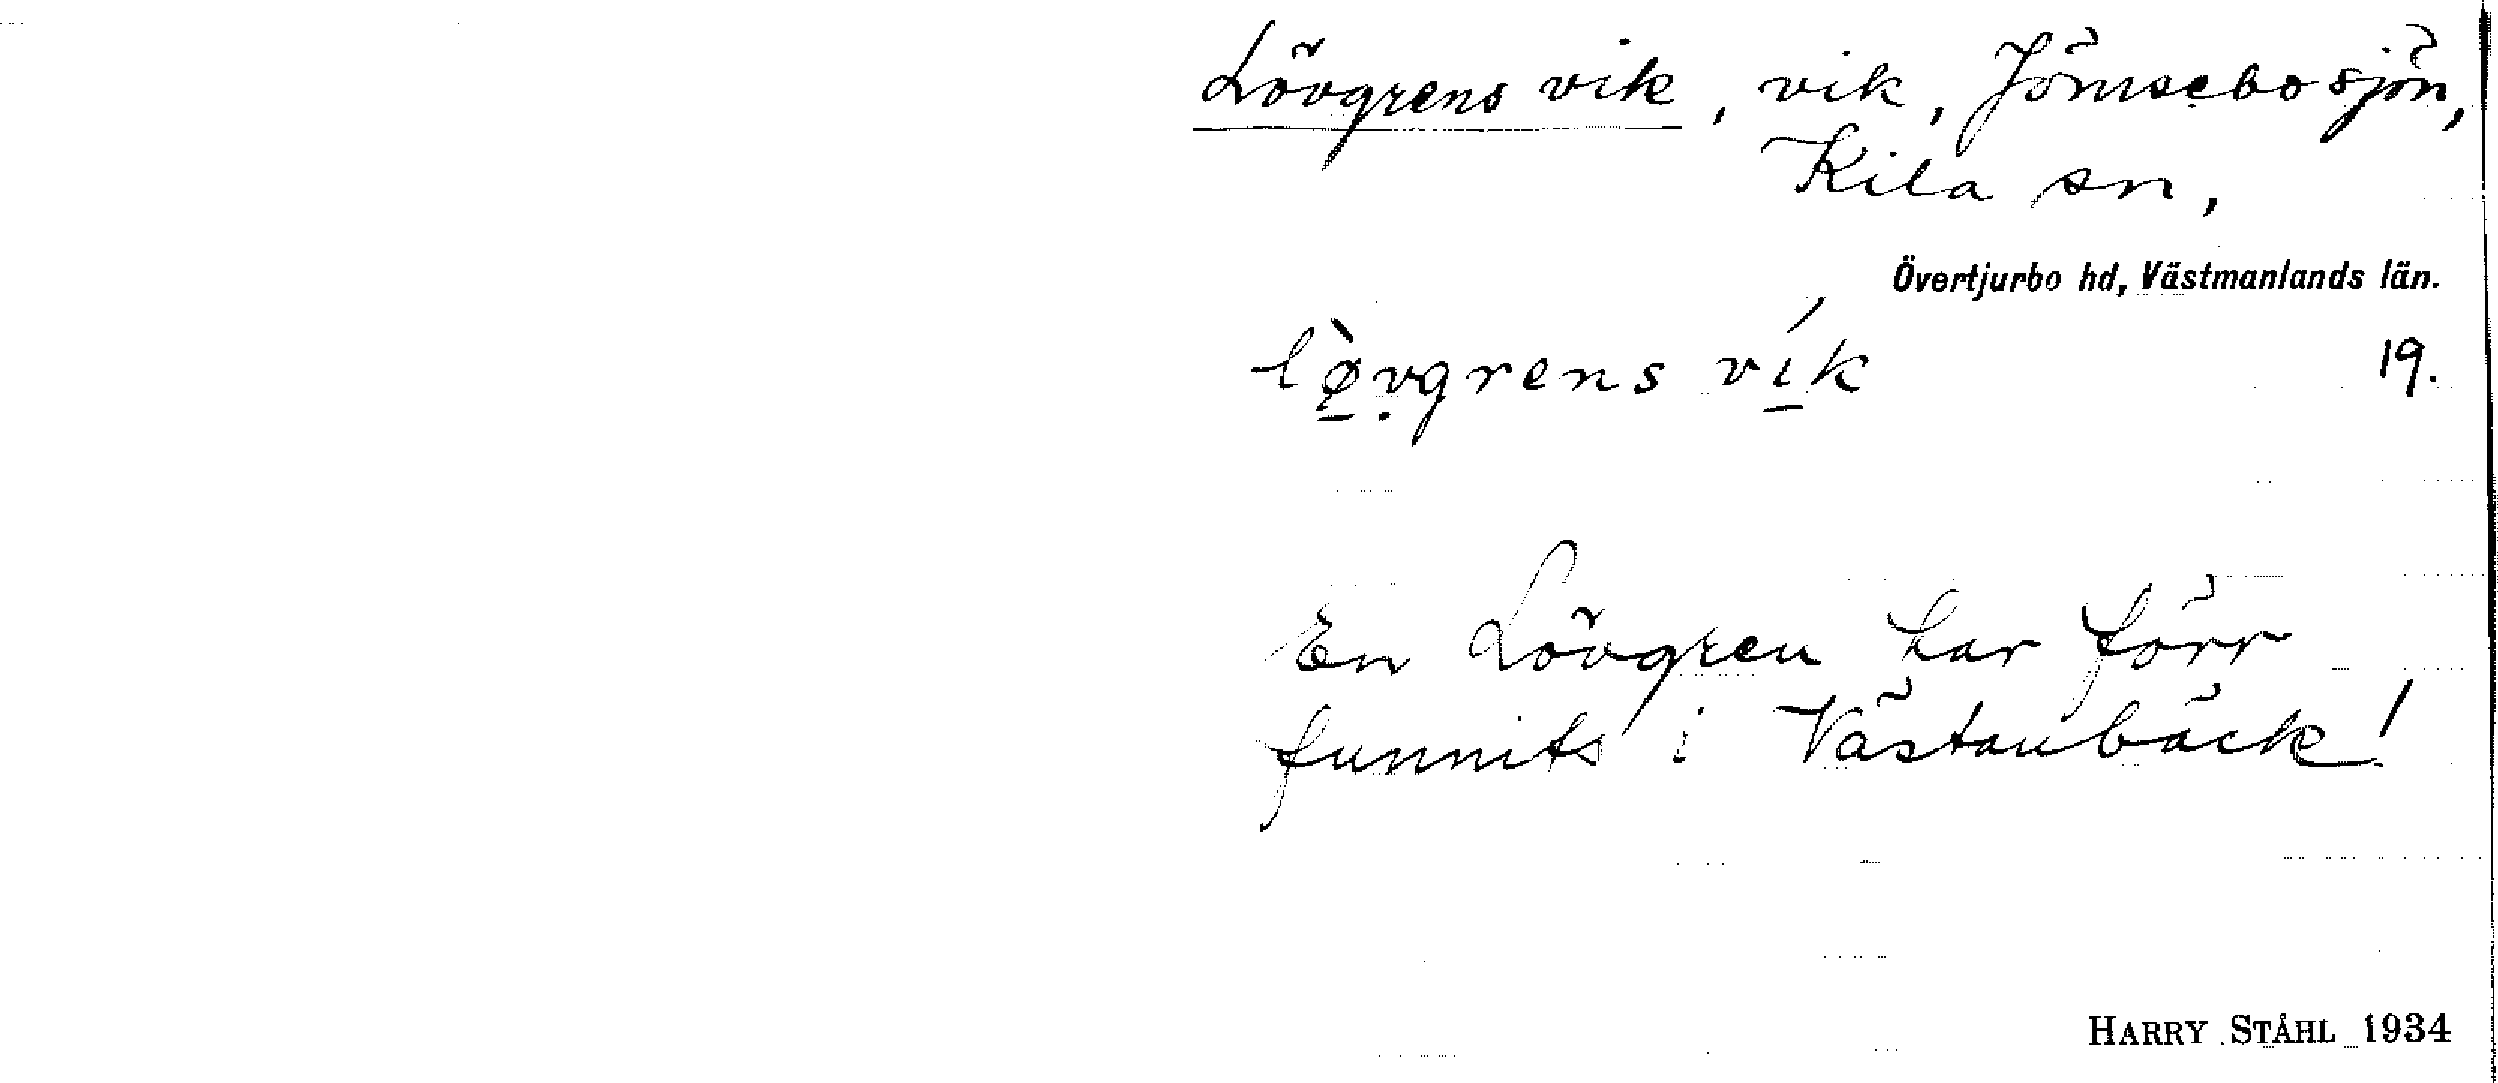 Lövgrens vik, vik, Jömsebosjön,
Kila sn,
Övertjurbo hd, Västmanlands län.
lø̀vgrens vík 19.
En Lövgren har förr
funnits i Västanbäck!
HARRY STÅHL 1934